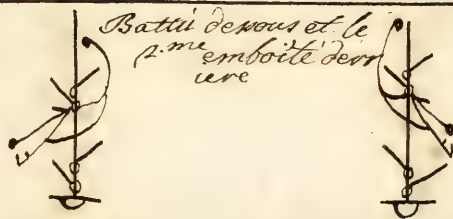 Battu desous et le
2.me emboité derri
iere